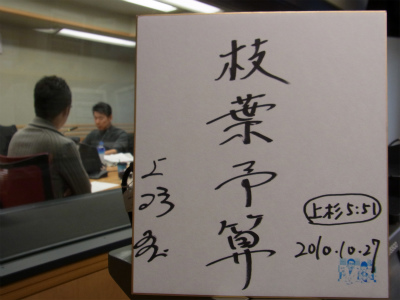 枝葉予算
上杉隆
上杉5:51
2010.10.27